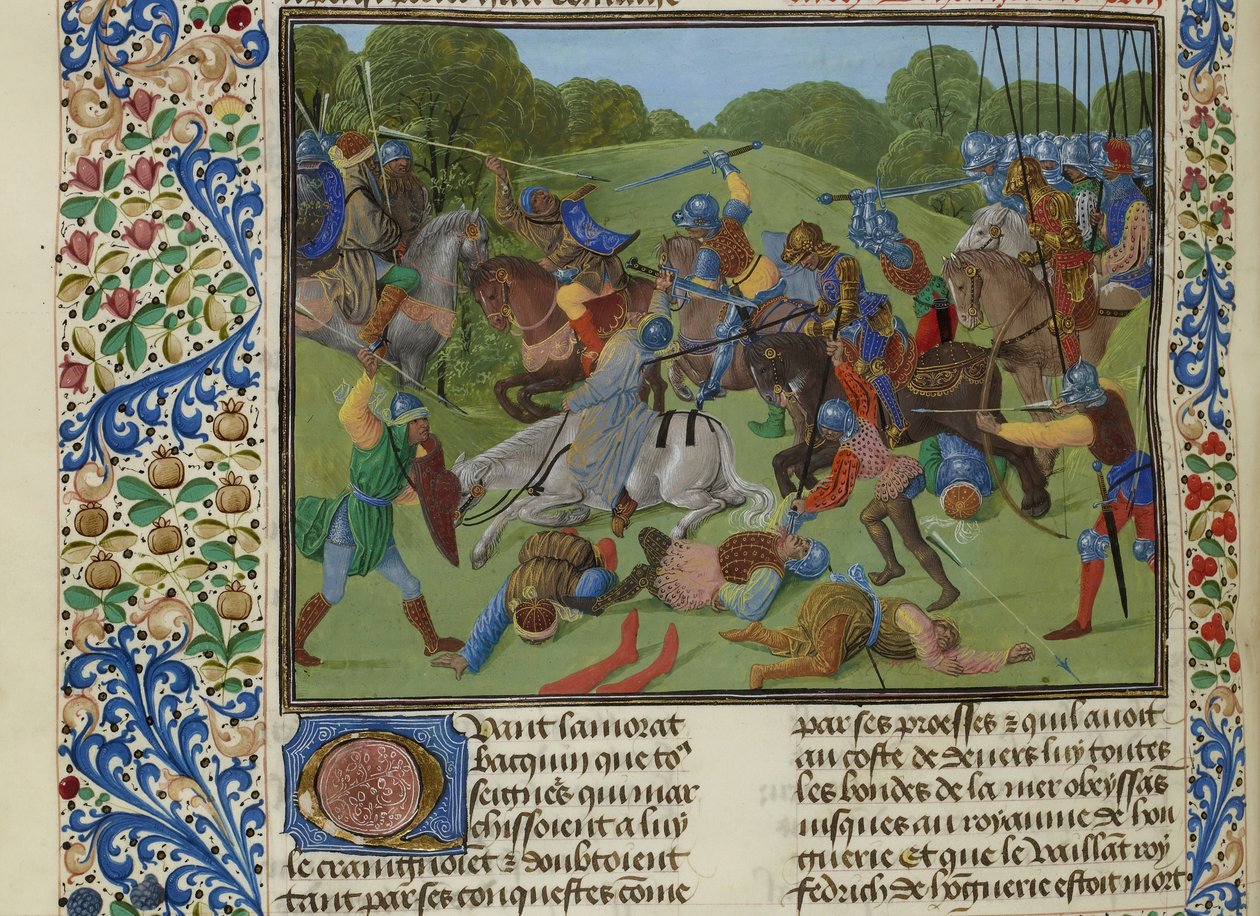 Quant lamorat
bacquin que to9
seigneꝰs qui mar
chissoient a luy
le craingnoiēt ⁊ doubtoient
tant par ses conquestes cōme
par ses proesses ⁊ quil auoit
au coste de deuers luy toutes
les bondes de la mer obeyssās
iusques au royaume de hon
guerie Et que le vaillāt roy
fedrich de hōguerie estoit mort